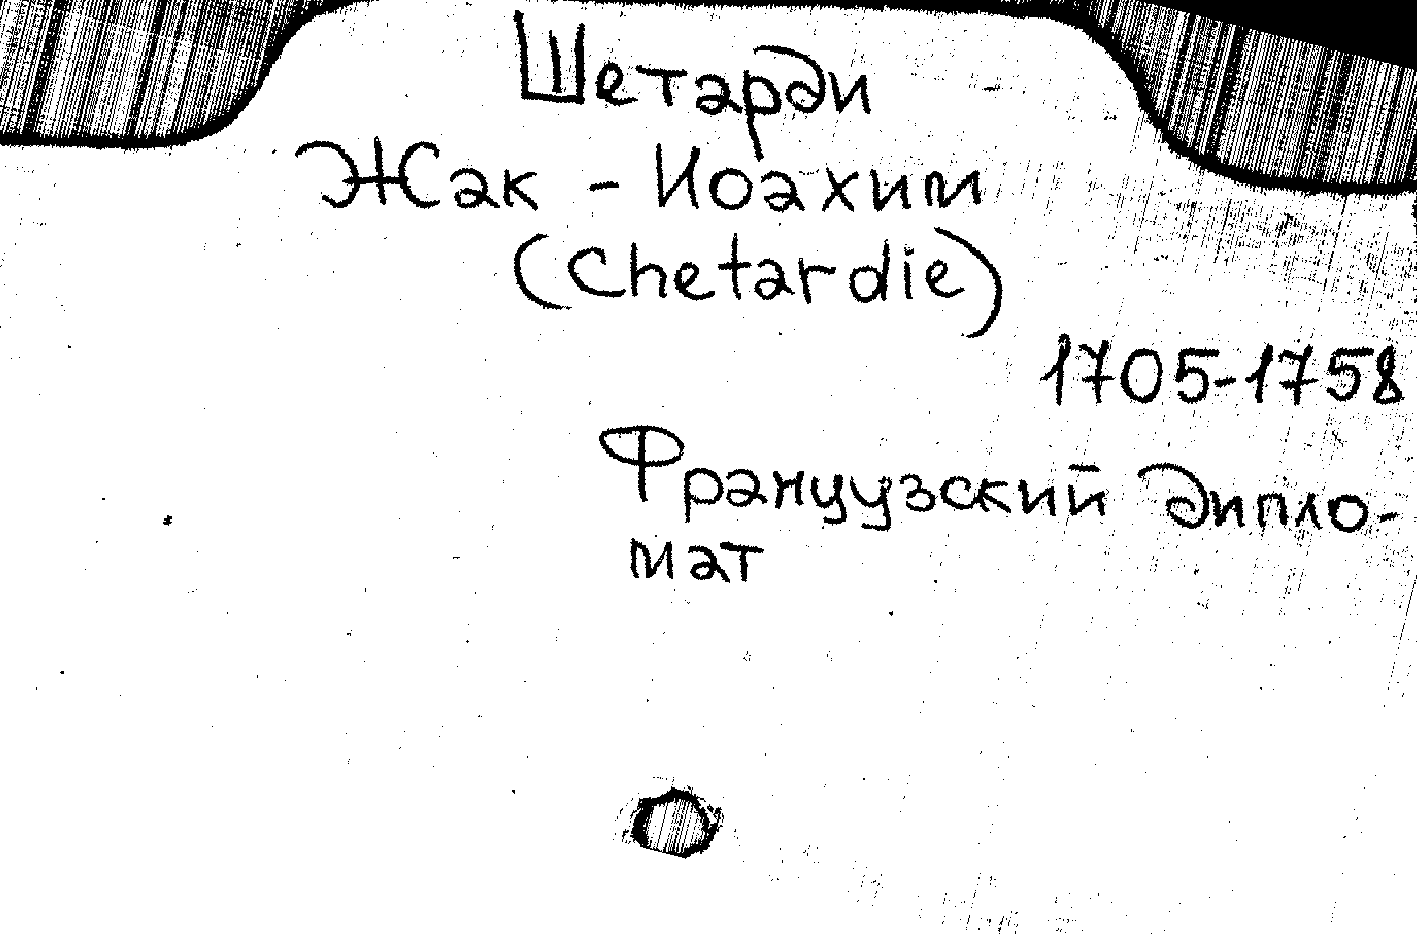 Шетарди
Жак - Иоахим
(Chetardie)
1705-1758
Французский дипло-
мат